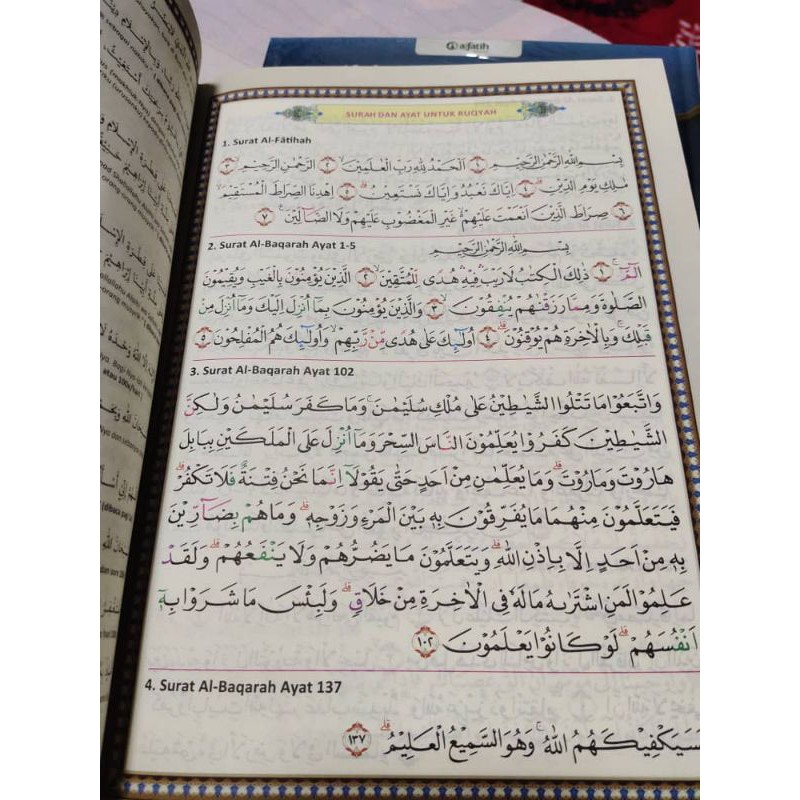 a:fatih
SURAH DAN AYAT UNTUK RUQYAH
1. Surat Al-Fâtihah
بِسْمِ اللّٰهِ الرَّحْمٰنِ الرَّحِيْمِ ١ اَلْحَمْدُ لِلّٰهِ رَبِّ الْعٰلَمِيْنَ ٢ الرَّحْمٰنِ الرَّحِيْمِ ٣
مٰلِكِ يَوْمِ الدِّيْنِ ٤ اِيَّاكَ نَعْبُدُ وَاِيَّاكَ نَسْتَعِيْنُ ٥ اِهْدِنَا الصِّرَاطَ الْمُسْتَقِيْمَ
٦ صِرَاطَ الَّذِيْنَ اَنْعَمْتَ عَلَيْهِمْ غَيْرِ الْمَغْضُوْبِ عَلَيْهِمْ وَلَا الضَّاۤلِّيْنَ ٧
2. Surat Al-Baqarah Ayat 1-5
بِسْمِ اللّٰهِ الرَّحْمٰنِ الرَّحِيْمِ
الۤمّۤ ١ ذٰلِكَ الْكِتٰبُ لَا رَيْبَ فِيْهِ هُدًى لِّلْمُتَّقِيْنَ ٢ الَّذِيْنَ يُؤْمِنُوْنَ بِالْغَيْبِ وَيُقِيْمُوْنَ
الصَّلٰوةَ وَمِمَّا رَزَقْنٰهُمْ يُنْفِقُوْنَ ٣ وَالَّذِيْنَ يُؤْمِنُوْنَ بِمَآ اُنْزِلَ اِلَيْكَ وَمَآ اُنْزِلَ مِنْ
قَبْلِكَ وَبِالْاٰخِرَةِ هُمْ يُوْقِنُوْنَ ٤ اُولٰۤىِٕكَ عَلٰى هُدًى مِّنْ رَّبِّهِمْ وَاُولٰۤىِٕكَ هُمُ الْمُفْلِحُوْنَ ٥
3. Surat Al-Baqarah Ayat 102
وَاتَّبَعُوْا مَا تَتْلُوا الشَّيٰطِيْنُ عَلٰى مُلْكِ سُلَيْمٰنَ وَمَا كَفَرَ سُلَيْمٰنُ وَلٰكِنَّ
الشَّيٰطِيْنَ كَفَرُوْا يُعَلِّمُوْنَ النَّاسَ السِّحْرَ وَمَآ اُنْزِلَ عَلَى الْمَلَكَيْنِ بِبَابِلَ
هَارُوْتَ وَمَارُوْتَ وَمَا يُعَلِّمٰنِ مِنْ اَحَدٍ حَتّٰى يَقُوْلَآ اِنَّمَا نَحْنُ فِتْنَةٌ فَلَا تَكْفُرْ
فَيَتَعَلَّمُوْنَ مِنْهُمَا مَا يُفَرِّقُوْنَ بِهٖ بَيْنَ الْمَرْءِ وَزَوْجِهٖ وَمَا هُمْ بِضَاۤرِّيْنَ
بِهٖ مِنْ اَحَدٍ اِلَّا بِاِذْنِ اللّٰهِ وَيَتَعَلَّمُوْنَ مَا يَضُرُّهُمْ وَلَا يَنْفَعُهُمْ وَلَقَدْ
عَلِمُوْا لَمَنِ اشْتَرٰىهُ مَا لَهٗ فِى الْاٰخِرَةِ مِنْ خَلَاقٍ وَلَبِئْسَ مَا شَرَوْا بِهٖٓ
اَنْفُسَهُمْ لَوْ كَانُوْا يَعْلَمُوْنَ ١٠٢
4. Surat Al-Baqarah Ayat 137
فَسَيَكْفِيْكَهُمُ اللّٰهُ وَهُوَ السَّمِيْعُ الْعَلِيْمُ ١٣٧